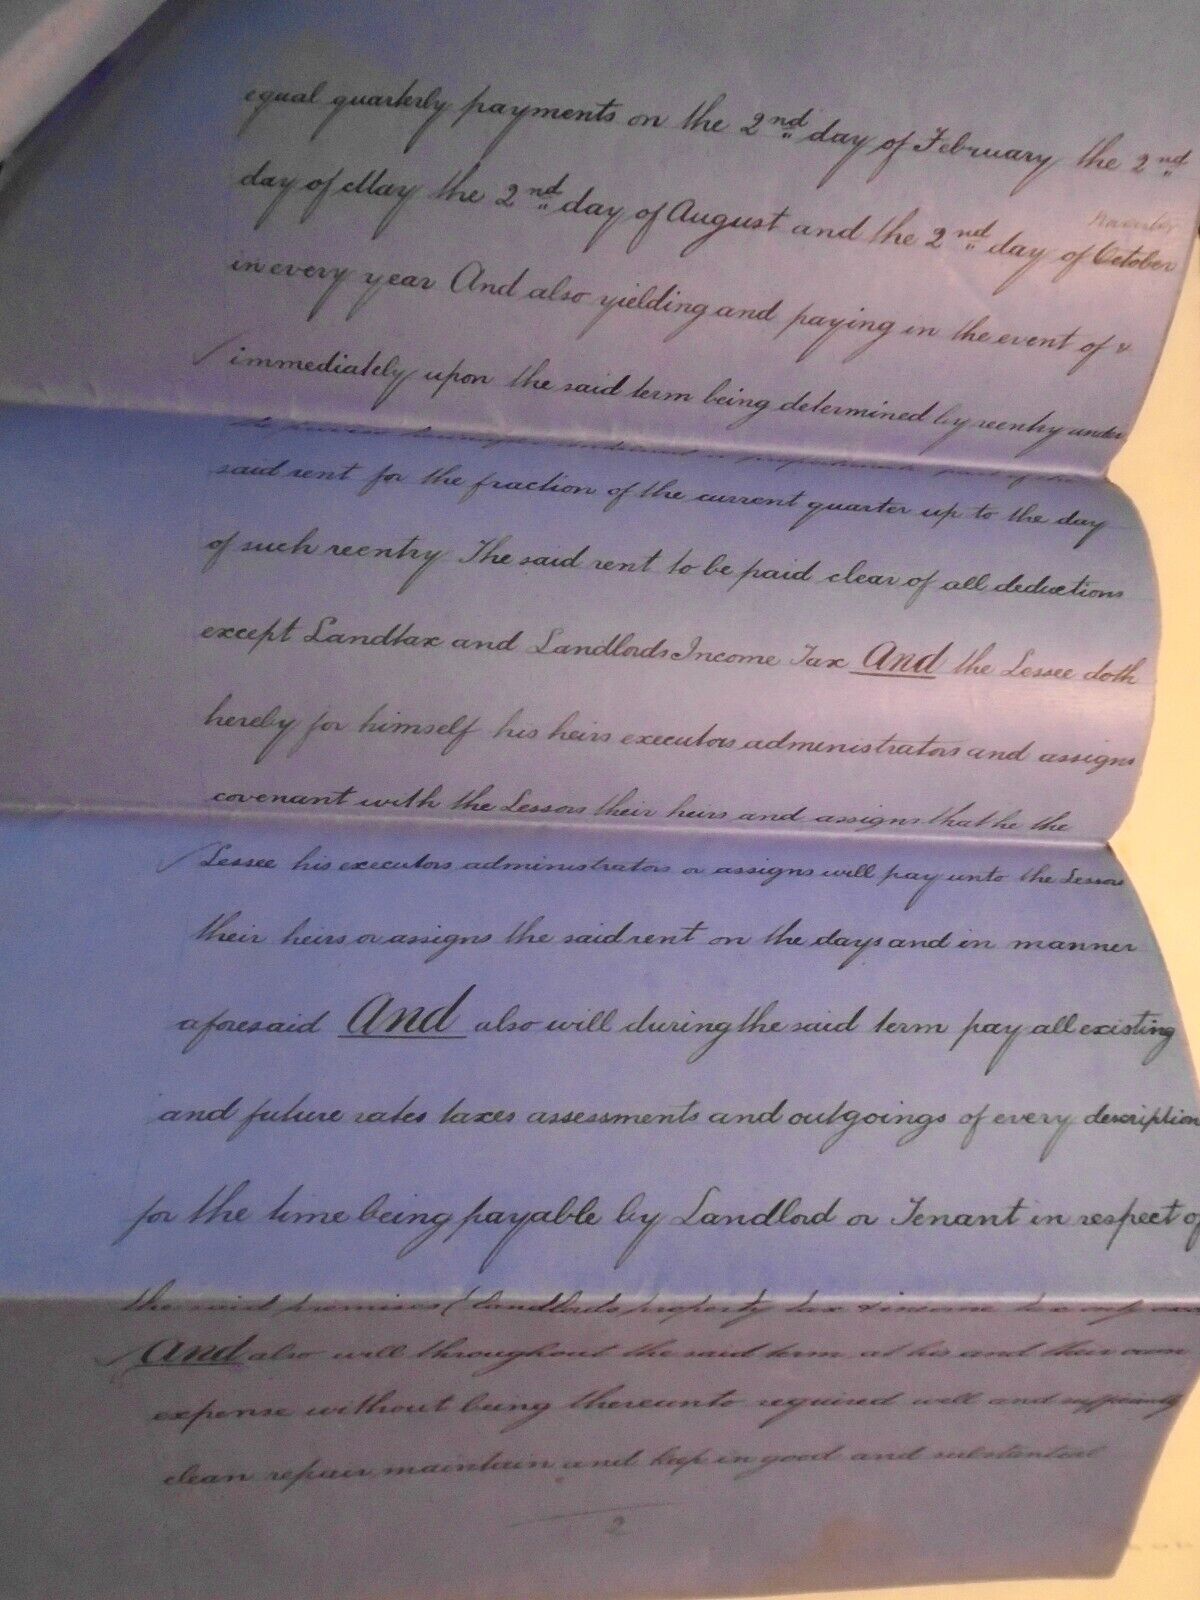 equal quarterly payments on the 2nd day of February the 2nd
November
day of May the 2nd day of August and the 2nd day of October
in every year And also yielding and paying in the event of &
immediately upon the said term being determined by reentry under
the proviso hereinafter contained a proportionate part of the
said rent for the fraction of the current quarter up to the day
of such reentry The said rent to be paid clear of all deductions
except Landtax and Landlords Income Tax And the Lessee doth
hereby for himself his heirs executors administrators and assigns
covenant with the Lessors their heirs and assigns that he the
Lessee his executors administrators or assigns will pay unto the Lessors
their heirs or assigns the said rent on the days and in manner
aforesaid And also will during the said term pay all existing
and future rates taxes assessments and outgoings of every description
for the time being payable by Landlord or Tenant in respect of
the said premises (Landlords property tax & income tax only
And also will throughout the said term at his and their own
expense without being thereunto required well and sufficiently
clean repair maintain and keep in good and substantial
2